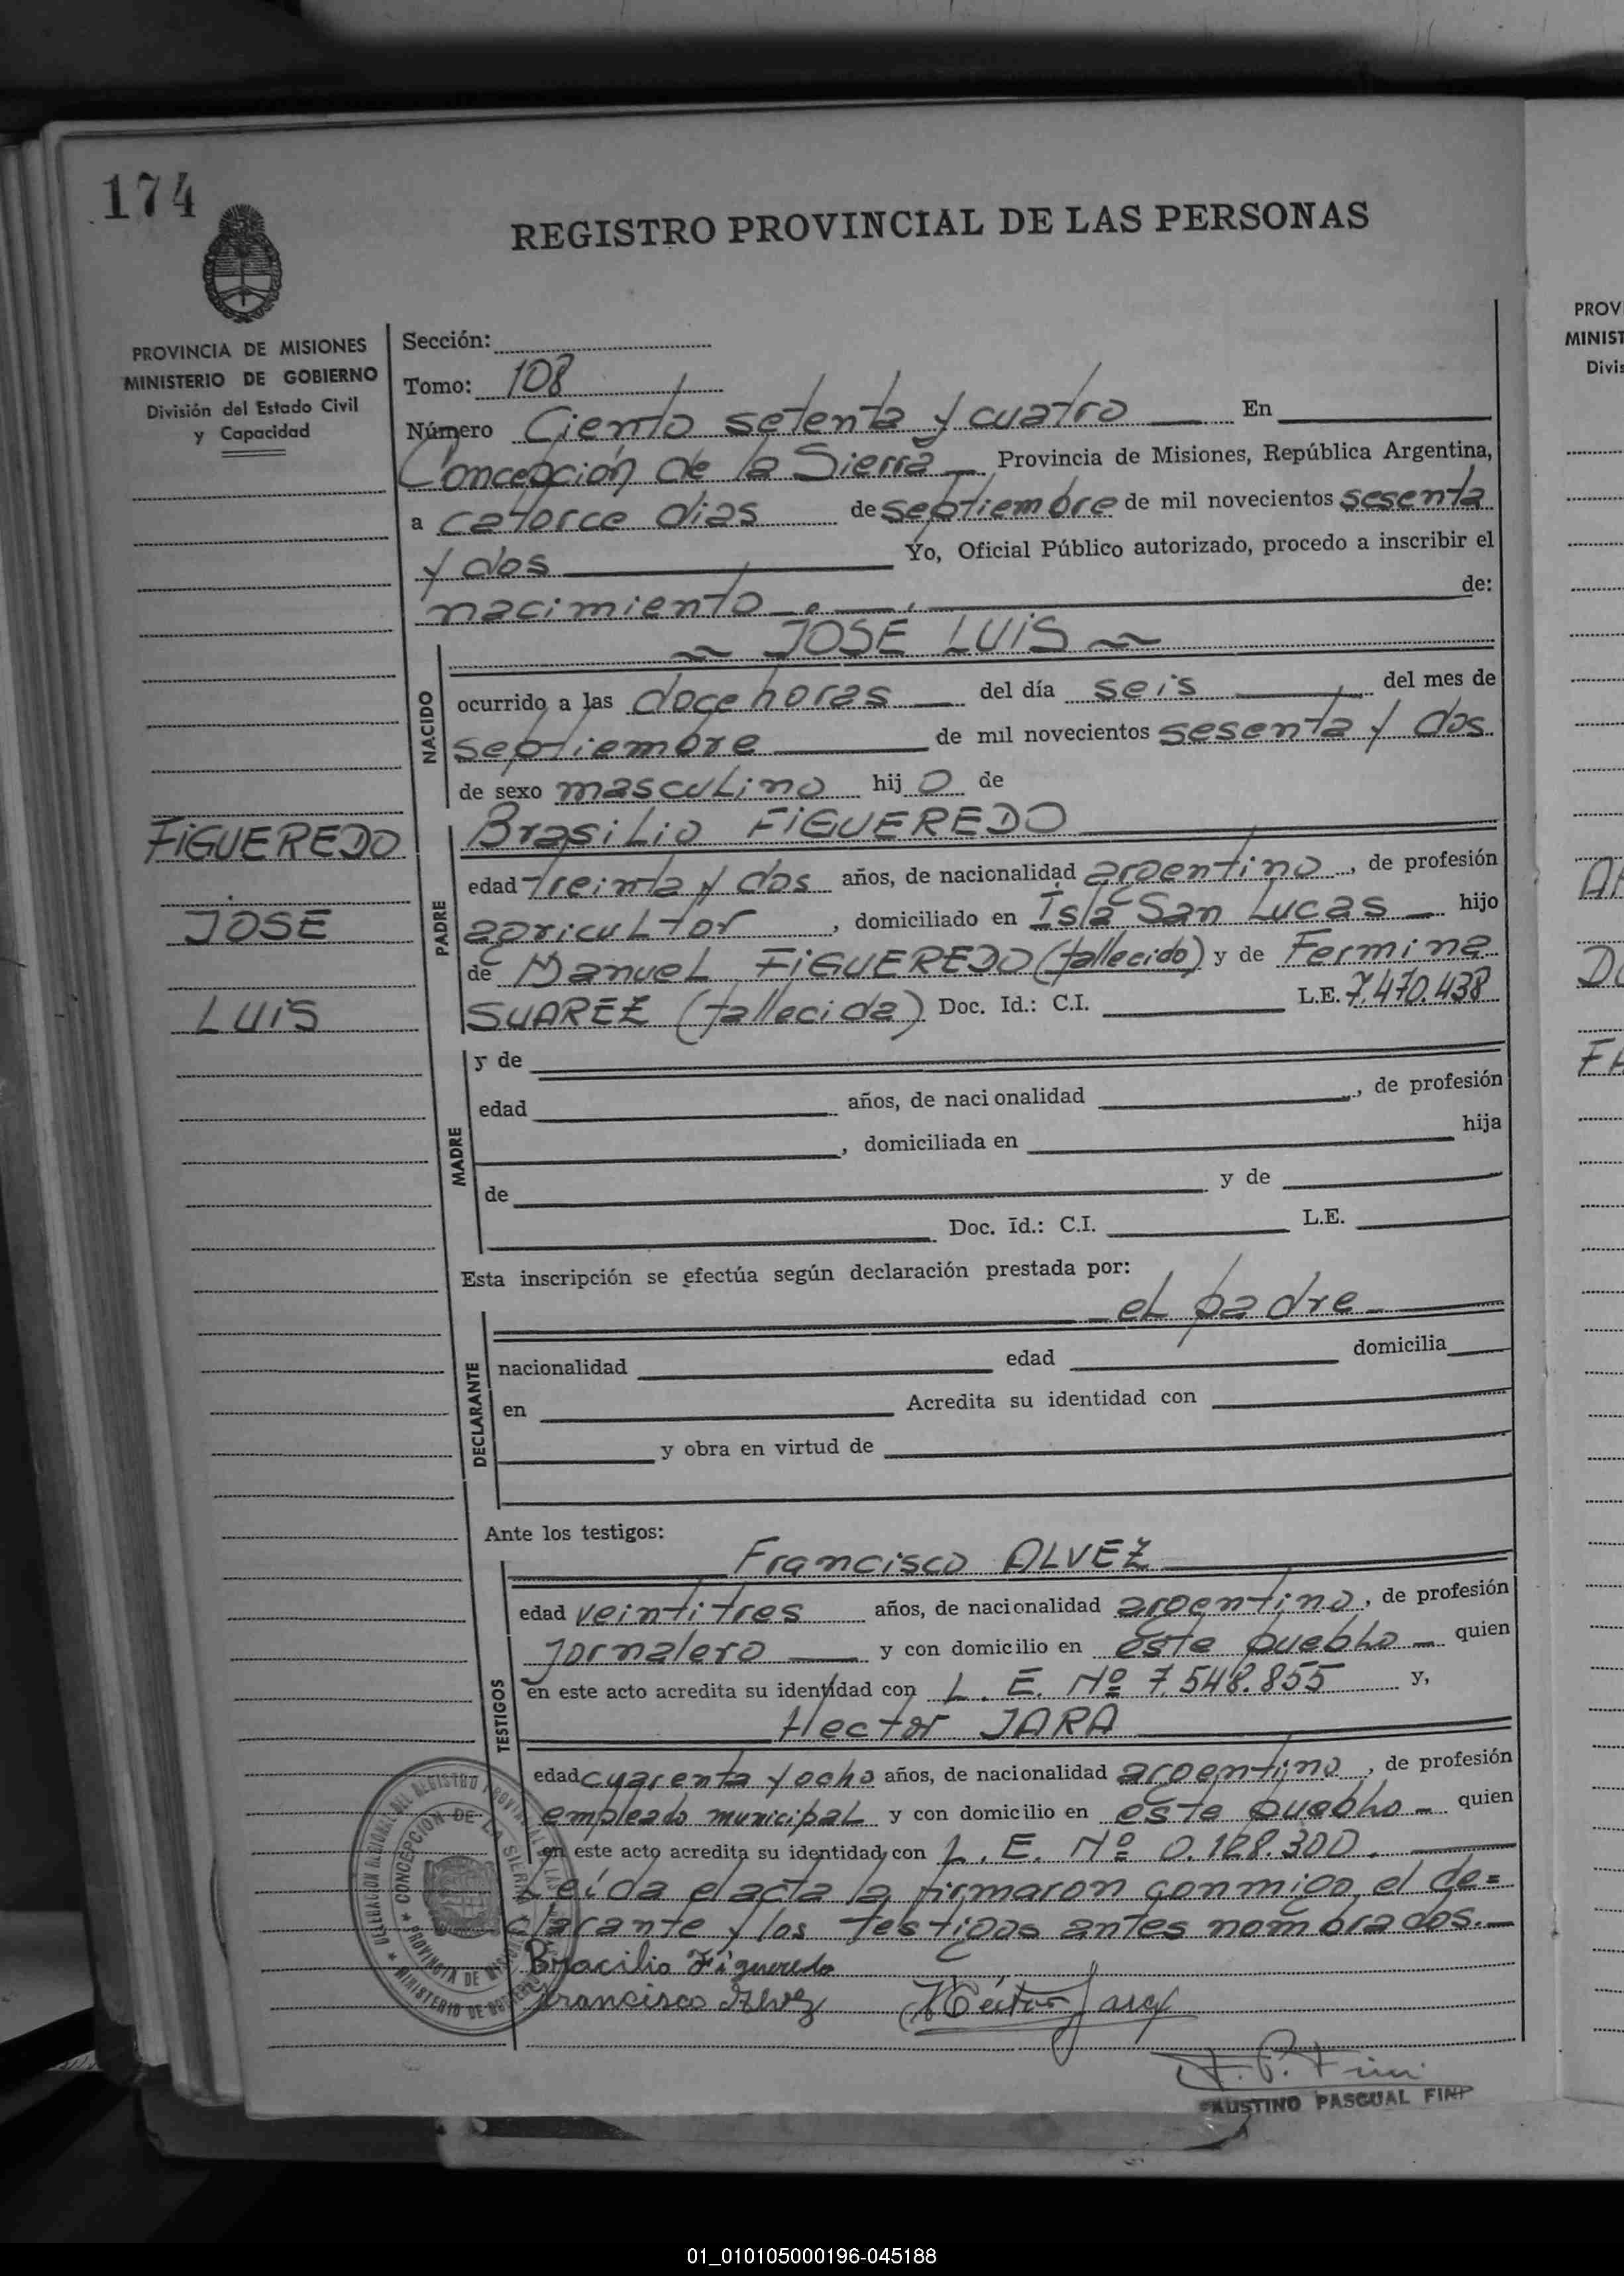 174
REGISTRO PROVINCIAL DE LAS PERSONAS
PROVINCIA DE MISIONES
MINISTERIO DE GOBIERNO
División del Estado Civil
y Capacidad
FIGUEREDO
JOSE
LUIS
Sección:
Tomo: 108
Número Ciento setenta y cuatro En
Concepción de la Sierra Provincia de Misiones, República Argentina,
a catorce dias de septiembre de mil novecientos sesenta
y dos Yo, Oficial Público autorizado, procedo a inscribir el
nacimiento de:
JOSE LUIS
NACIDO
ocurrido a las doce horas del día seis del mes de
septiembre de mil novecientos sesenta y dos
de sexo masculino hijo de
PADRE
Brasilio FIGUEREDO
edad treinta y dos años, de nacionalidad argentino, de profesión
agricultor, domiciliado en Isla San Lucas hijo
de Manuel FIGUEREDO (fallecido) y de Fermina
SUAREZ (fallecida) Doc. Id.: C.I. L.E. 7.470.438
MADRE
y de
edad años, de nacionalidad, de profesión
, domiciliada en hija
de y de
Doc. Id.: C.I. L.E.
Esta inscripción se efectúa según declaración prestada por:
el padre
DECLARANTE
nacionalidad edad domicilia
en Acredita su identidad con
y obra en virtud de
Ante los testigos:
Francisco ALVEZ
TESTIGOS
edad veintitres años, de nacionalidad argentino, de profesión
jornalero y con domicilio en este pueblo quien
en este acto acredita su identidad con L. E. Nº 7.548.855 y,
Hector JARA
edad cuarenta y ocho años, de nacionalidad argentino, de profesión
empleado municipal y con domicilio en este pueblo quien
en este acto acredita su identidad con L. E. Nº 0.128.300.
Leída el acta la firmaron conmigo, el de=
clarante y los testigos antes nombrados.
Bracilio Figueredo
Francisco Alvez Héctor Jara
F. P. Fini
FAUSTINO PASCUAL FINI
CONCEPCION DE LA SIERRA
PROVINCIA DE MISIONES
MINISTERIO DE GOBIERNO
PROV
MINIST
Divis
01_010105000196-045188